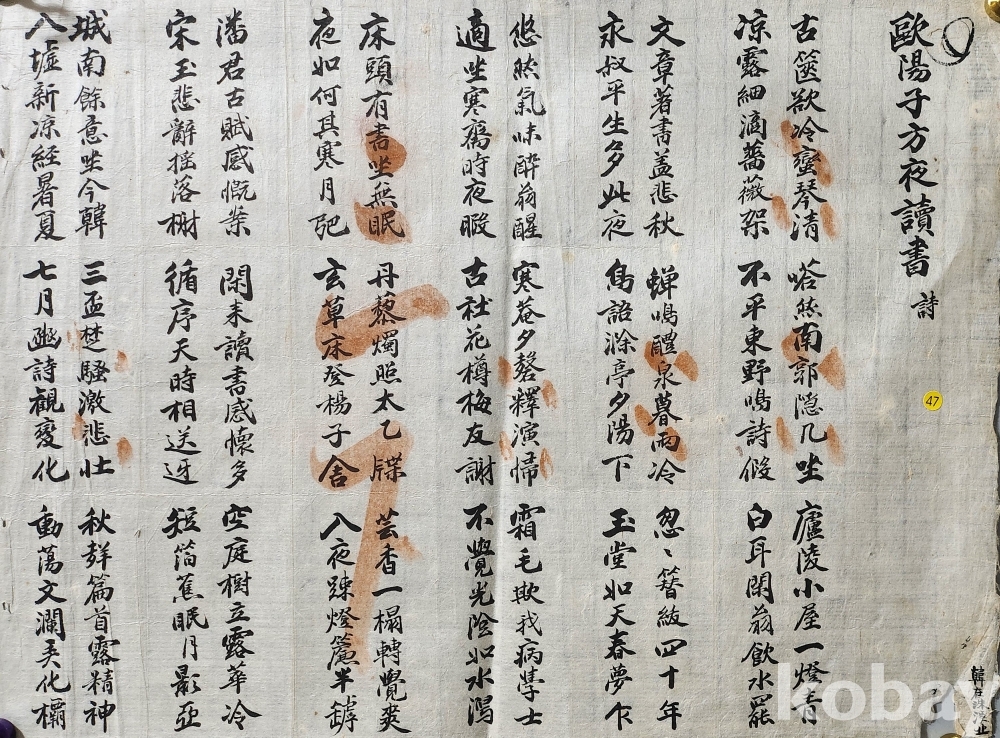 歐陽子方夜讀書 詩
古篋欲冷蠻琴清 嗒然南郭隐几坐 廬陵小屋一燈青
凉露細滴薔薇架 不平東野鳴詩假 白耳閑翁飲水罷
文章著書盖悲秋 蟬鳴醴泉暮雨冷 忽〻簪紱四十年
永叔平生多此夜 鳥語滁亭夕陽下 玉堂如天春夢乍
悠然氣味醉翁醒 寒菴夕磬釋演帰 霜毛欺我病學士
適坐寒窓時夜暇 古社花樽梅友謝 不覺光陰如水瀉
床頭有書坐無眠 丹藜燭照太乙牒 芸香一榻轉覺爽
夜如何其寒月弛 玄草床登楊子舍 八夜踈燈簾半罅
潘君古賦感慨業 閑来讀書感懷多 空庭樹立露華冷
宋玉悲辭搖落榭 循序天時相送迓 短笛蕉眠月影亞
城南餘意坐今韓 三盃楚騷激悲壯 秋聲篇首露精神
八墟新凉経暑夏 七月豳詩観変化 動蕩文瀾化
47
kobay